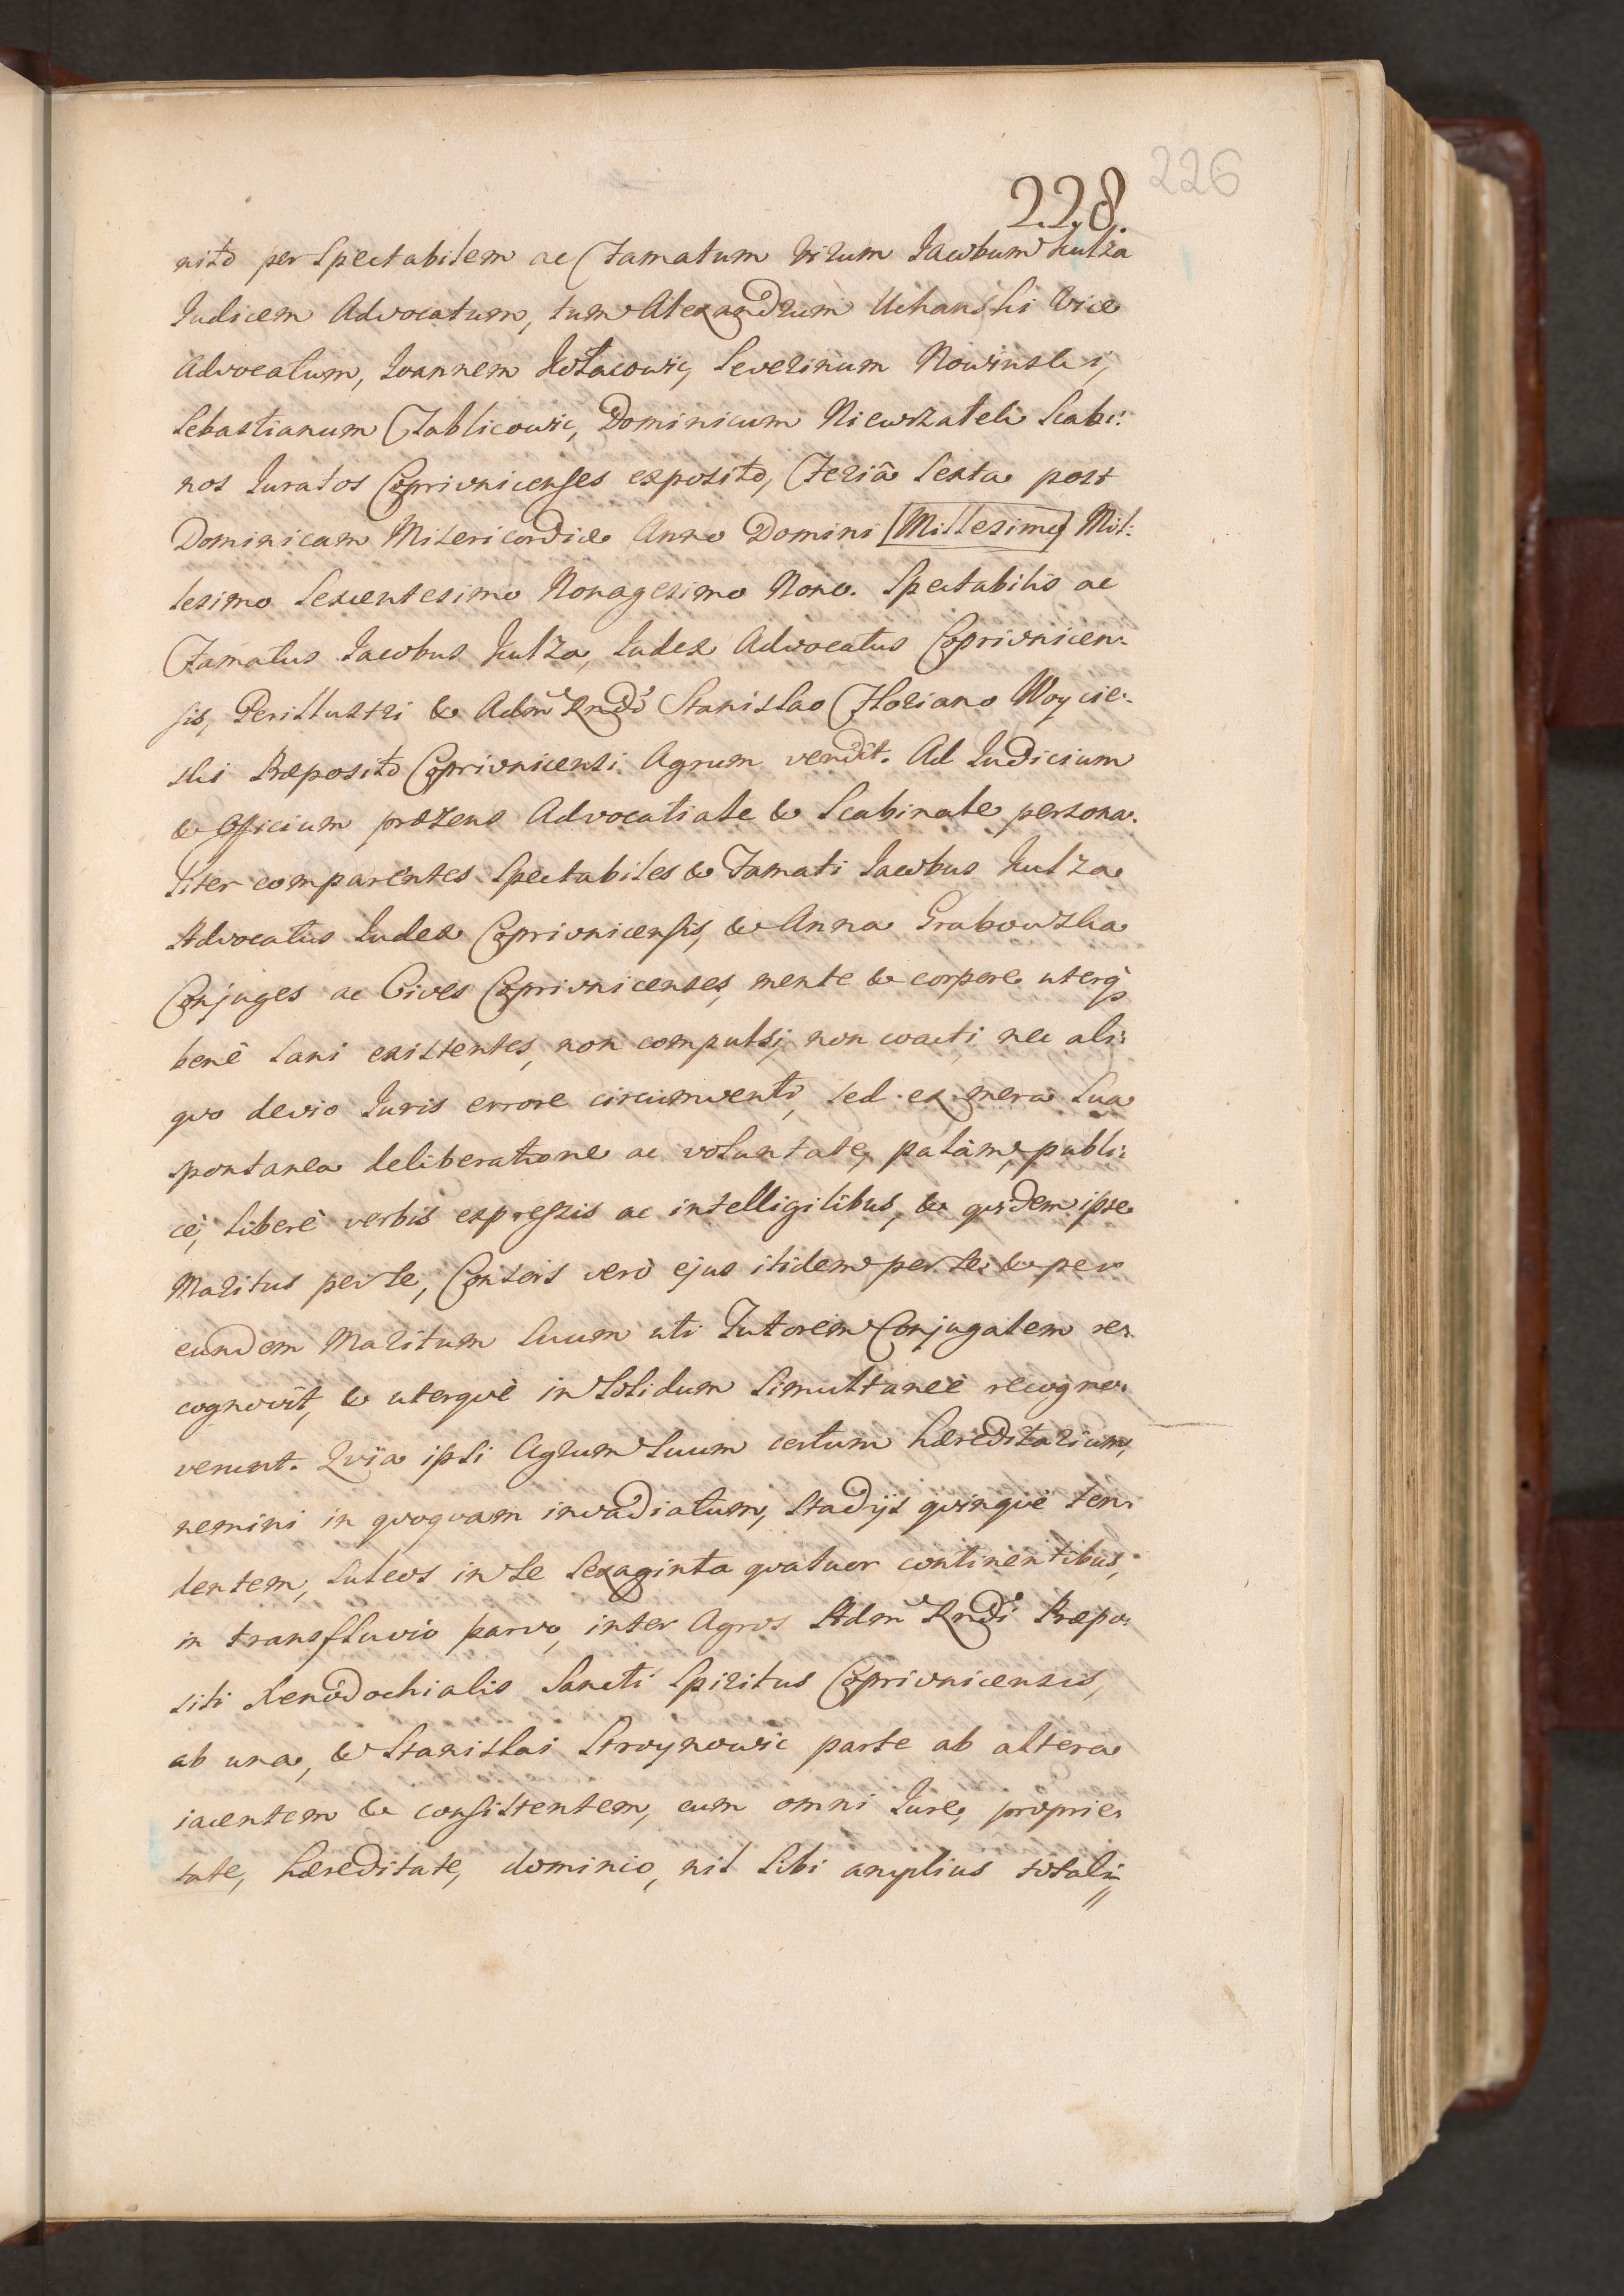 226
228.
nito per Spectabilem ac Famatum Virum Jacobum Kulza
Judicem Advocatum, tum Alexandrum Uchanski Vice
Advocatum, Joannem Severinum Nowinski,
Sebastianum Dominicum Scabi:
nos Juratos Coprivnicenses exposito, Feriâ Sexta post
Dominicam Misericordiæ Anno Domini [Millesimo] Mil:
lesimo Sexcentesimo Nonagesimo Nono. Spectabilis ac
Famatus Jacobus Kulza, Judex Advocatus Coprivnicen:
sis, Perillustri & Adm Rndo Stanislao Floriano Woycie:
ski Præposito Coprivnicensi Agrum vendit. Ad Judicium
& Officium præsens Advocatiale & Scabinale persona:
liter comparentes Spectabiles & Famati Jacobus Kulza
Advocatus Judex Coprivnicensis, & Anna Grabowska
Conjuges ac Cives Coprivnicenses, mente & corpore uterq
benè sani existentes, non compulsi, non coacti nec ali:
quo devio Juris errore circumventi, sed ex mera sua
spontanea deliberatione ac voluntate, palàm, publi:
cè, liberè verbis expressis ac intelligilibus, & quidem ipse
Maritus per se, Consors verò ejus itidem per se & per
eundem Maritum Suum uti Tutorem Conjugalem re:
cognovit, & uterquè in solidum simultaneè recogno:
verunt. Quia ipsi Agrum Suum certum hæreditarium,
nemini in quoquam invadiatum, stadijs quinquè ten:
dentem, sulcos in se sexaginta quatuor continentibus,
in transfluvio parvo, inter Agros Adm Rndi Præpo:
siti Xenodochialis Sancti Spiritus Coprivnicensis,
ab una, & Stanislai Stroynowic parte ab altera
iacentem & consistentem, cum omni Jure, proprie:
tate, hæreditate, dominio, nil sibi amplius totali